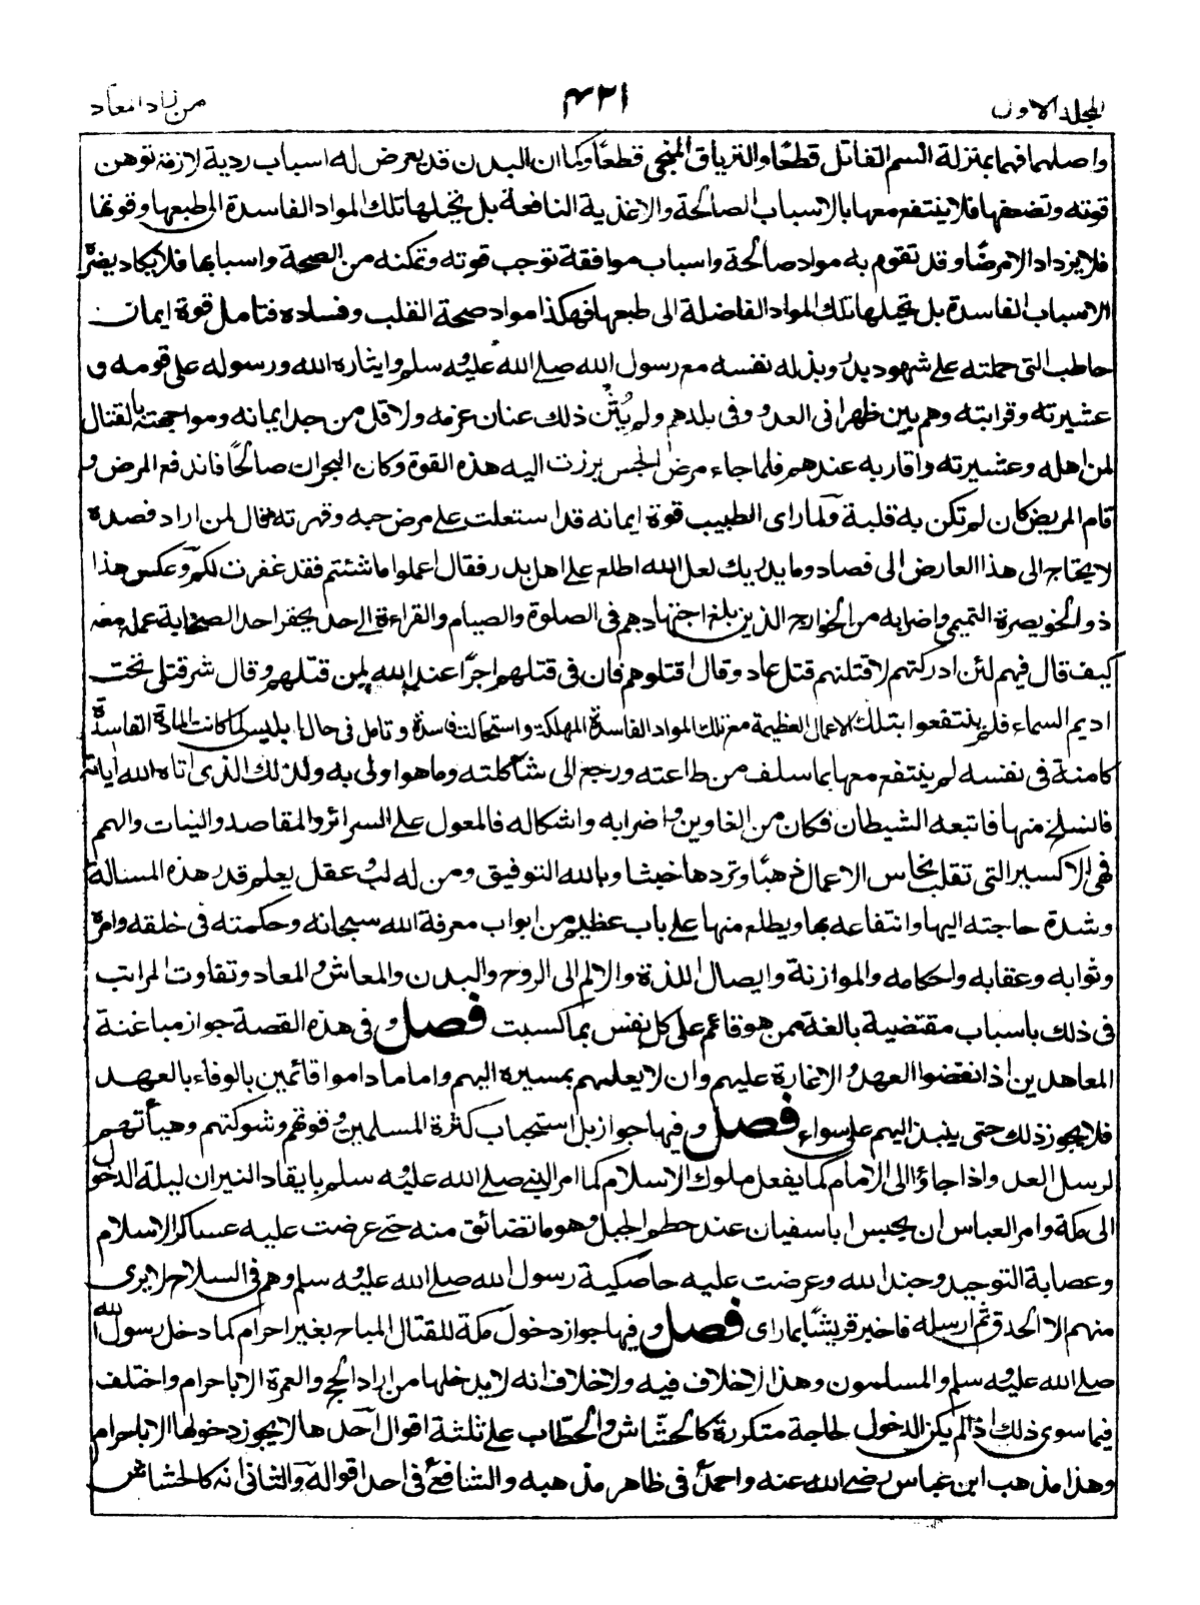 المجلد الاول
۴۲۱
من زاد المعاد
واصلهما فهما بمنزلة السم القاتل قطعًا والترياق المنجى قطعًا وكما ان البدن قد يعرض له اسباب ردية لازمة توهن
قوته وتضعفها فلا ينتفع معها بالاسباب الصالحة والاغذية النافعة بل تحيلها تلك المواد الفاسدة الى طبعها وقوتها
فلا يزداد الا مرضًا وقد تقوم به مواد صالحة واسباب موافقة توجب قوته وتمكنه من الصحة واسبابها فلا يكاد يضره
الاسباب الفاسدة بل تحيلها تلك المواد الفاضلة الى طبعها فهكذا مواد صحة القلب وفساده فتامل قوة ايمان
حاطب التى حملته على شهود بدر وبذله نفسه مع رسول الله صلے الله عليه وسلم وايثاره الله ورسوله على قومه و
عشيرته وقرابته وهم بين ظهرانى العدو وفى بلدهم ولم يُثن ذلك عنان عزمه ولا قل من حد ايمانه ومواجهته بالقتال
لمن اهله وعشيرته واقاربه عندهم فلما جاء مرض الجس برزت اليه هذه القوة وكان البحران صالحًا فاندفع المرض و
قام المريض كان لم تكن به قلبة ولما راى الطبيب قوة ايمانه قد استعلت على مرض جسه وقهرته قال لمن اراد فصده
لا يحتاج الى هذا العارض الى فصاد وما يدريك لعل الله اطلع على اهل بدر فقال اعملوا ما شئتم فقد غفرت لكم وعكس هذا
ذو الخويصرة التميمى واضرابه من الخوارج الذين بلغ اجتهادهم فى الصلوة والصيام والقراءة الى حد يحقر احد الصحابة عمله معه
كيف قال فيهم لئن ادركتهم لاقتلنهم قتل عاد وقال اقتلوهم فان فى قتلهم اجرًا عند الله لمن قتلهم وقال شر قتلى تحت
اديم السماء فلم ينتفعوا بتلك الاعمال العظيمة مع تلك المواد الفاسدة المهلكة واستحالت فاسدة وتامل فى حال ابليس لما كانت المادة الفاسدة
كامنة فى نفسه لم ينتفع معها بما سلف من طاعته ورجع الى شاكلته وما هو اولى به ولذلك الذى اتاه الله اياته
فانسلخ منها فاتبعه الشيطان فكان من الغاوين واضرابه واشكاله فالمعول على السرائر والمقاصد والنيات والهمم
فهى الاكسير التى تقلب نحاس الاعمال ذهبًا وتردها خبثا وبالله التوفيق ومن له لب وعقل يعلم قدر هذه المسئالة
وشدة حاجته اليها وانتفاعه بها ويطلع منها على باب عظيم من ابواب معرفة الله سبحانه وحكمته فى خلقه وامره
وثوابه وعقابه واحكامه والموازنة وايصال اللذة والالم الى الروح والبدن والمعاش والمعاد وتفاوت المراتب
فى ذلك باسباب مقتضية بالغة ممن هو قائم على كل نفس بما كسبت فصل و فى هذه القصة جواز مباغتة
المعاهدين اذا نقضوا العهد والاغارة عليهم وان لا يعلمهم بمسيره اليهم واما ما داموا قائمين بالوفاء بالعهد
فلا يجوز ذلك حتى ينبذ اليهم على سواء فصل و فيها جواز بل استحباب كثرة المسلمين وقوتهم وشوكتهم وهيأتهم
لرسل العدو اذا جاؤا الى الامام كما يفعل ملوك الاسلام كما امر النبى صلے الله عليه وسلم بايقاد النيران ليلة الدخول
الى مكة وامر العباس ان يحبس ابا سفيان عند حطم الجبل وهو ما تضائق منه حتى عرضت عليه عساكر الاسلام
وعصابة التوحيد وجند الله وعرضت عليه خاصكية رسول الله صلے الله عليه وسلم وهم فى السلاح لا يرى
منهم الا الحدق ثم ارسله فاخبر قريشًا بما راى فصل و فيها جواز دخول مكة للقتال المباح بغير احرام كما دخل رسول الله
صلے الله عليه وسلم والمسلمون وهذا لا خلاف فيه ولا خلاف انه لا يدخلها من اراد الحج والعمرة الا باحرام واختلف
فيما سوى ذلك اذا لم يكن الدخول لحاجة متكررة كالحشاش والحطاب على ثلثة اقوال احدها لا يجوز دخولها الا باحرام
وهذا مذهب ابن عباس رضے الله عنه واحمد فى ظاهر مذهبه والشافعى فى احد اقواله والثانى انه كالحشاش